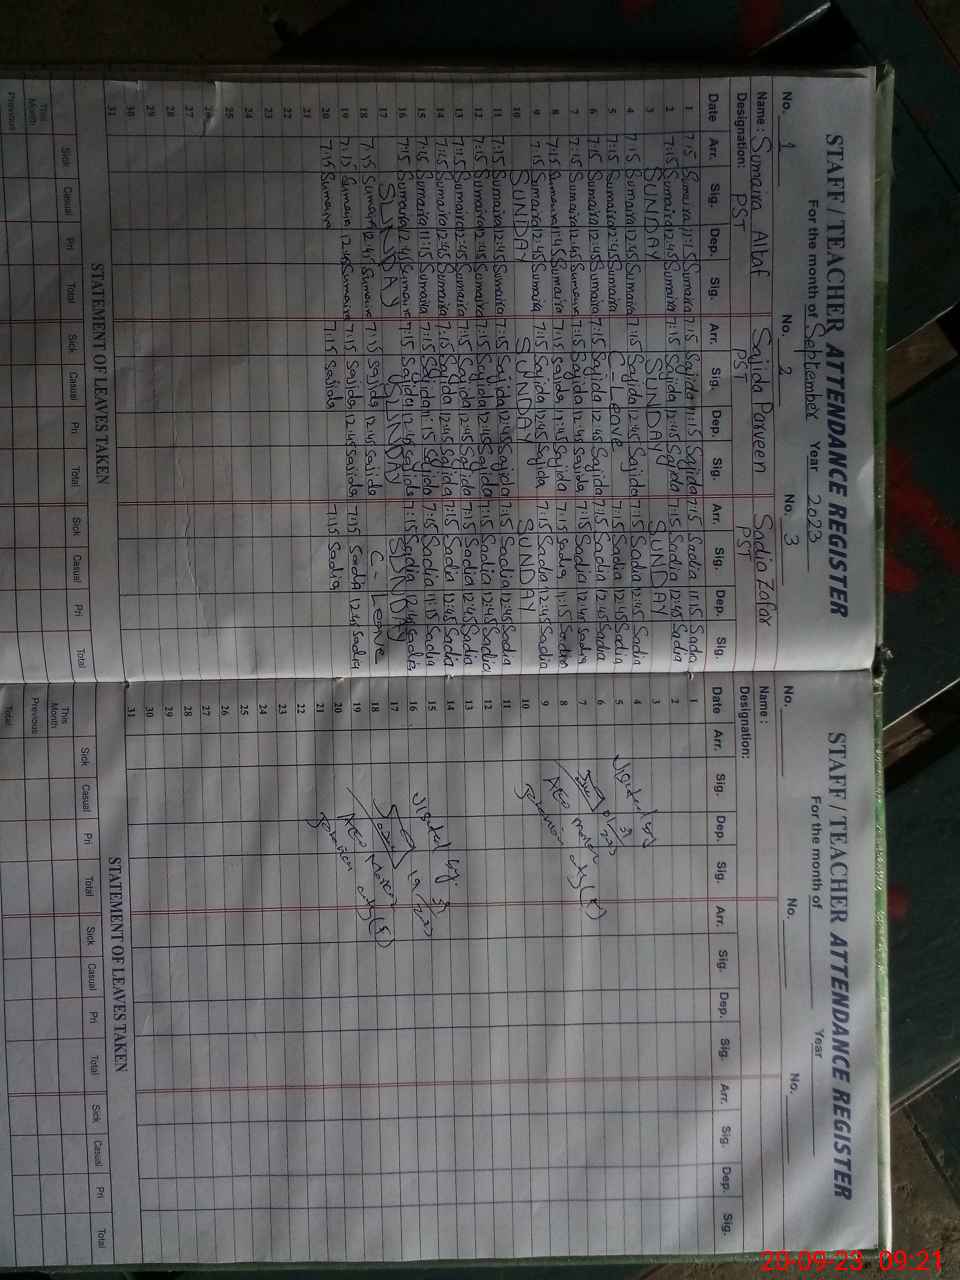 STAFF / TEACHER ATTENDANCE REGISTER
For the month of September Year 2023
No. 1 No. 2 No. 3
Name : Sumaira Altaf Sajida Parveen Sadia Zafar
Designation: PST PST PST
Date Arr. Sig. Dep. Sig. Arr. Sig. Dep. Sig. Arr. Sig. Dep. Sig.
1 7:15 Sumaira 11:15 Sumaira 7:15 Sajida 11:15 Sajida 7:15 Sadia 11:15 Sadia
2 7:15 Sumaira 12:45 Sumaira 7:15 Sajida 12:45 Sajida 7:15 Sadia 12:45 Sadia
3 SUNDAY SUNDAY SUNDAY
4 7:15 Sumaira 12:45 Sumaira 7:15 Sajida 12:45 Sajida 7:15 Sadia 12:45 Sadia
5 7:15 Sumaira 12:45 Sumaira C-Leave 7:15 Sadia 12:45 Sadia
6 7:15 Sumaira 12:45 Sumaira 7:15 Sajida 12:45 Sajida 7:15 Sadia 12:45 Sadia
7 7:15 Sumaira 12:45 Sumaira 7:15 Sajida 12:45 Sajida 7:15 Sadia 12:45 Sadia
8 7:15 Sumaira 11:45 Sumaira 7:15 Sajida 11:45 Sajida 7:15 Sadia 11:15 Sadia
9 7:15 Sumaira 12:45 Sumaira 7:15 Sajida 12:45 Sajida 7:15 Sadia 12:45 Sadia
10 SUNDAY SUNDAY SUNDAY
11 7:15 Sumaira 12:45 Sumaira 7:15 Sajida 12:45 Sajida 7:15 Sadia 12:45 Sadia
12 7:15 Sumaira 12:45 Sumaira 7:15 Sajida 12:45 Sajida 7:15 Sadia 12:45 Sadia
13 7:15 Sumaira 12:45 Sumaira 7:15 Sajida 12:45 Sajida 7:15 Sadia 12:45 Sadia
14 7:15 Sumaira 12:45 Sumaira 7:15 Sajida 12:45 Sajida 7:15 Sadia 12:45 Sadia
15 7:15 Sumaira 11:15 Sumaira 7:15 Sajida 11:15 Sajida 7:15 Sadia 11:15 Sadia
16 7:15 Sumaira 12:45 Sumaira 7:15 Sajida 12:45 Sajida 7:15 Sadia 12:45 Sadia
17 SUNDAY SUNDAY SUNDAY
18 7:15 Sumaira 12:45 Sumaira 7:15 Sajida 12:45 Sajida C-Leave
19 7:15 Sumaira 12:45 Sumaira 7:15 Sajida 12:45 Sajida 7:15 Sadia 12:45 Sadia
20 7:15 Sumaira 7:15 Sajida 7:15 Sadia
21
22
23
24
25
26
27
28
29
30
31
STATEMENT OF LEAVES TAKEN
Sick Casual Pri Total Sick Casual Pri Total Sick Casual Pri Total
This Month
Previous
STAFF / TEACHER ATTENDANCE REGISTER
For the month of Year
No. No. No.
Name :
Designation:
Date Arr. Sig. Dep. Sig. Arr. Sig. Dep. Sig. Arr. Sig. Dep. Sig.
1
2
3
4
5
6
7
8
9
10
11
12
13
14
15
16
17
18
19
20
21
22
23
24
25
26
27
28
29
30
31
Visited by
AEO
Visited by
19
AEO
STATEMENT OF LEAVES TAKEN
Sick Casual Pri Total Sick Casual Pri Total Sick Casual Pri Total
This Month
Previous
Total
20-09-23 09:21